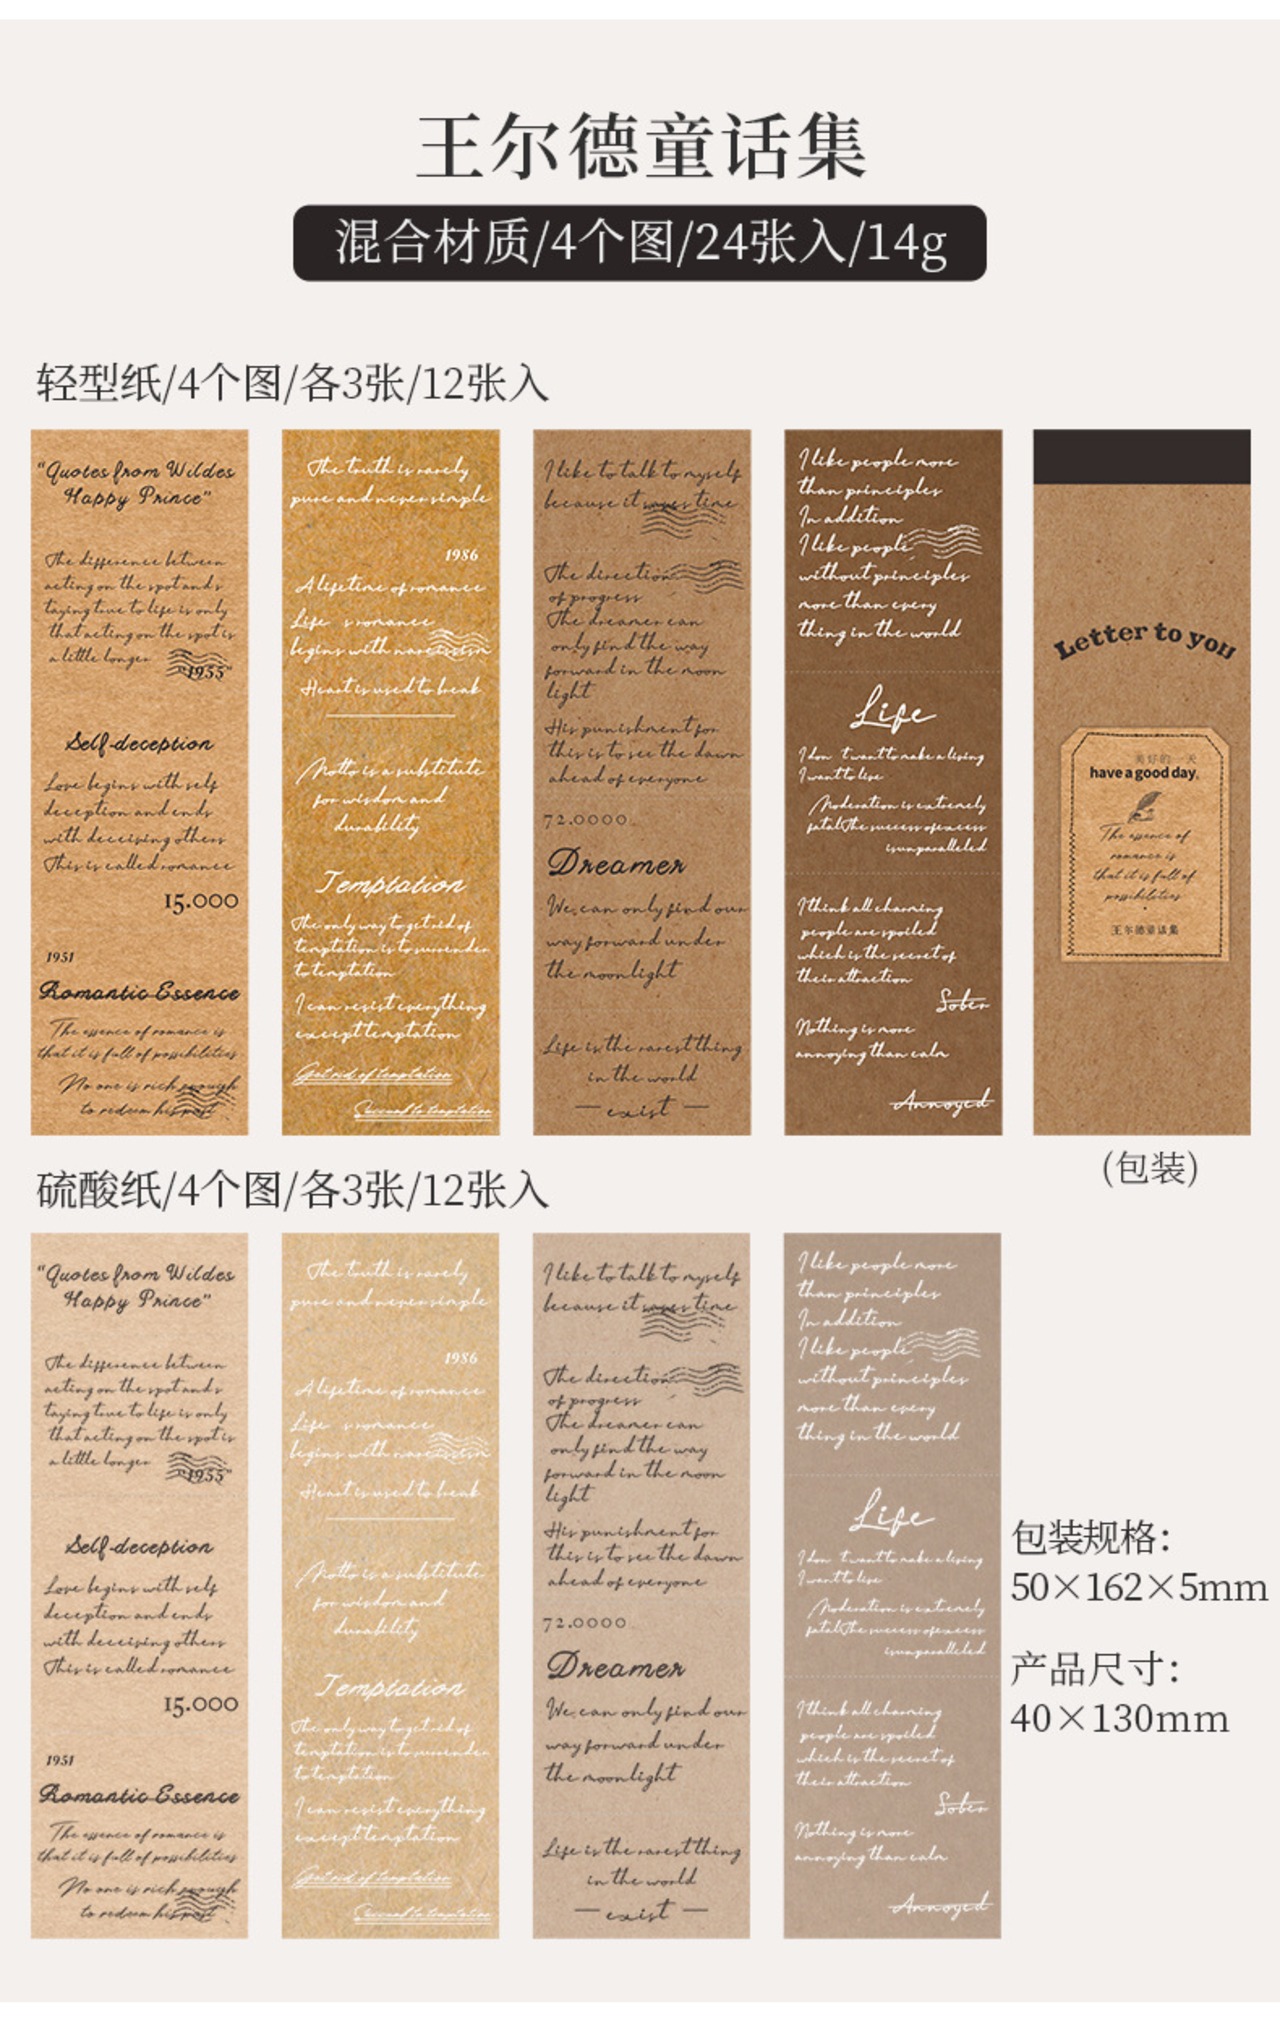 王尔德童话集
混合材质/4个图/24张入/14g
轻型纸/4个图/各3张/12张入
"Quotes from Wildes
Happy Prince"
The difference between
acting on the spot and s
taying true to life is only
that acting on the spot is
a little longer
"1955"
Self-deception
Love begins with self
deception and ends
with deceiving others
This is called romance
15.000
1951
Romantic Essence
The essence of romance is
that it is full of possibilities
No one is rich enough
to redeem his past
The truth is rarely
pure and never simple
1986
A lifetime of romance
Life s romance
begins with narcissism
Heart is used to break
Motto is a substitute
for wisdom and
durability
Temptation
The only way to get rid of
temptation is to surrender
to temptation
I can resist everything
except temptation
Get rid of temptation
Succumb to temptation
I like to talk to myself
because it saves time
The direction
of progress
The dreamer can
only find the way
forward in the moon
light
His punishment for
this is to see the dawn
ahead of everyone
72.0000
Dreamer
We can only find our
way forward under
the moonlight
Life is the rarest thing
in the world
— exist —
I like people more
than principles
In addition
I like people
without principles
more than every
thing in the world
Life
I don t want to make a living
I want to live
Moderation is extremely
fatal The success of excess
is unparalleled
I think all charming
people are spoiled
which is the secret of
their attraction
Sober
Nothing is more
annoying than calm
Annoyed
Letter to you
美好的一天
have a good day.
The essence of
romance is
that it is full of
possibilities
王尔德童话集
(包装)
硫酸纸/4个图/各3张/12张入
"Quotes from Wildes
Happy Prince"
The difference between
acting on the spot and s
taying true to life is only
that acting on the spot is
a little longer
"1955"
Self-deception
Love begins with self
deception and ends
with deceiving others
This is called romance
15.000
1951
Romantic Essence
The essence of romance is
that it is full of possibilities
No one is rich enough
to redeem his past
The truth is rarely
pure and never simple
1986
A lifetime of romance
Life s romance
begins with narcissism
Heart is used to break
Motto is a substitute
for wisdom and
durability
Temptation
The only way to get rid of
temptation is to surrender
to temptation
I can resist everything
except temptation
Get rid of temptation
Succumb to temptation
I like to talk to myself
because it saves time
The direction
of progress
The dreamer can
only find the way
forward in the moon
light
His punishment for
this is to see the dawn
ahead of everyone
72.0000
Dreamer
We can only find our
way forward under
the moonlight
Life is the rarest thing
in the world
— exist —
I like people more
than principles
In addition
I like people
without principles
more than every
thing in the world
Life
I don t want to make a living
I want to live
Moderation is extremely
fatal The success of excess
is unparalleled
I think all charming
people are spoiled
which is the secret of
their attraction
Sober
Nothing is more
annoying than calm
Annoyed
包装规格：
50×162×5mm
产品尺寸：
40×130mm